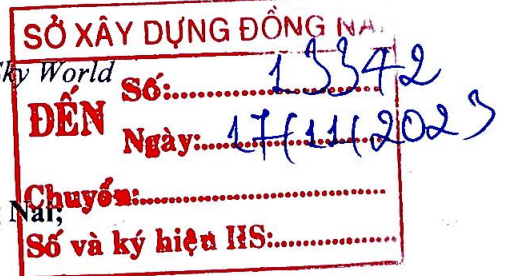 SỞ XÂY DỰNG ĐỒNG NAI
Sky World
ĐẾN
Số: 13342
Ngày: 17/11/2023
Chuyển:
Nai;
Số và ký hiệu HS: